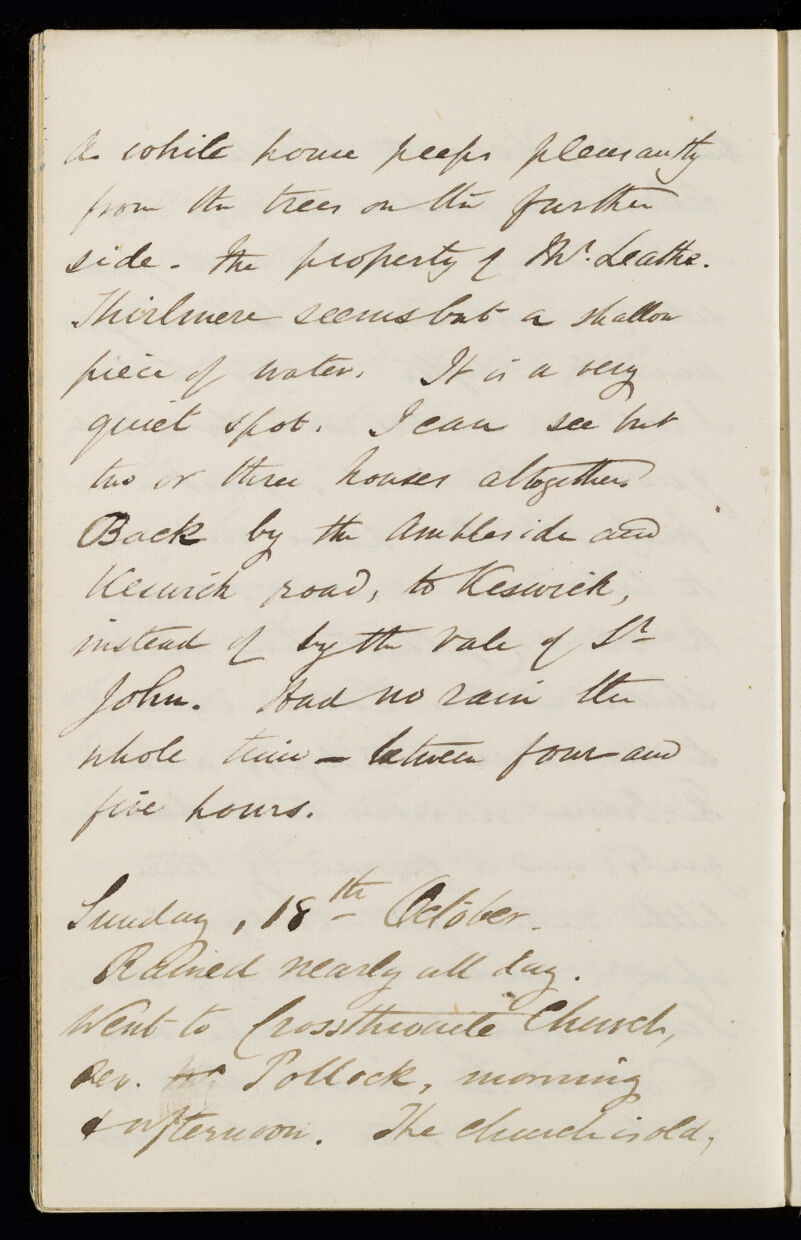 A white house peeps pleasantly
from the trees on the further
side. The property of Mr. Leathe.
Thirlmere seems but a shallow
piece of water. It is a very
quiet spot. I can see but
two or three houses altogether.
Back by the Ambleside and
Keswick road, to Keswick,
instead of by the Vale of St
John. Had no rain the
whole time — between four and
five hours.
Sunday, 18th October.
Rained nearly all day.
Went to Crossthwaite Church,
Rev. Pollock, morning
& afternoon. The church is old,